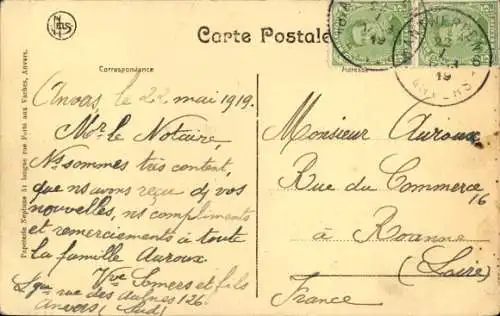 Carte Postale
Correspondance
Adresse
Anvers, le 22 mai 1919.
Mr. le Notaire,
Ns sommes très content,
que ns avons reçu de vos
nouvelles, ns compliments
et remerciements à toute
la famille Auroux.
Vve Somers et fils
rue des aulnes 126.
Anvers (Sud)
Monsieur Auroux
Rue du Commerce
16
à Roanne
(Loire)
France
Papeterie Neptune 51 longue rue Porte aux Vaches, Anvers.